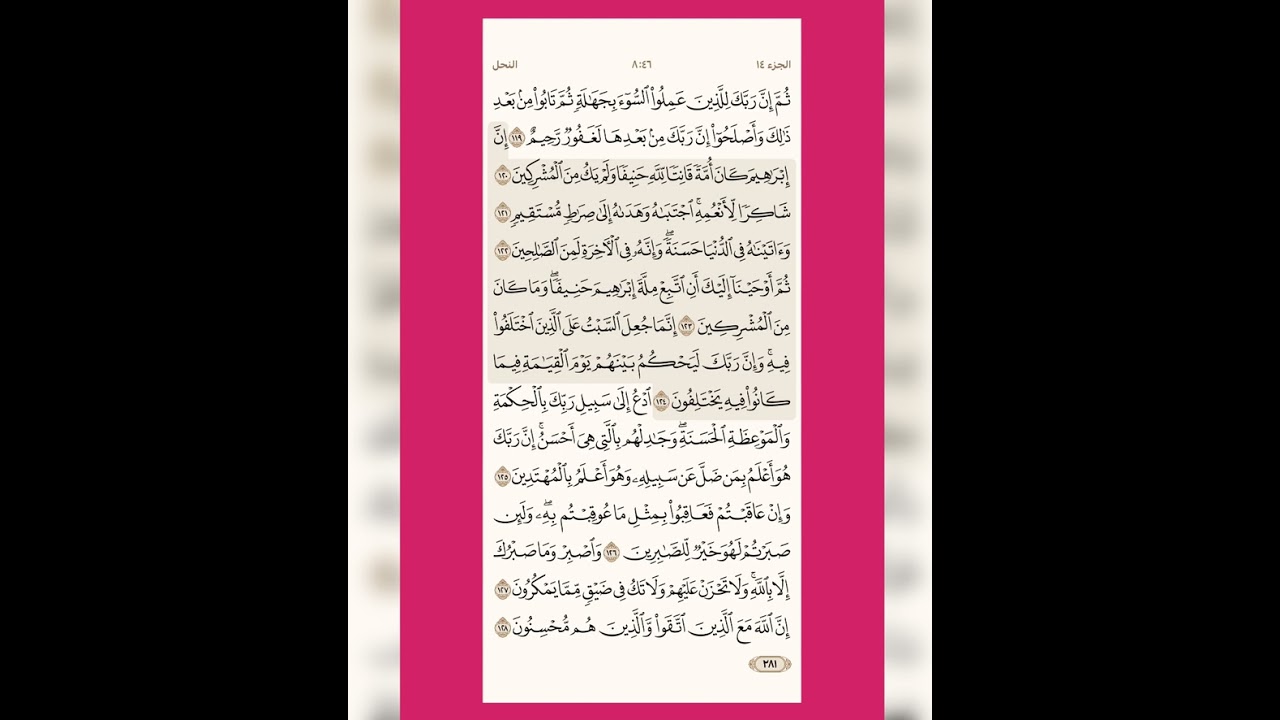 الجزء ١٤ ٨:٤٦ النحل
ثُمَّ إِنَّ رَبَّكَ لِلَّذِينَ عَمِلُوا۟ ٱلسُّوٓءَ بِجَهَٰلَةٍ ثُمَّ تَابُوا۟ مِنۢ بَعْدِ
ذَٰلِكَ وَأَصْلَحُوٓا۟ إِنَّ رَبَّكَ مِنۢ بَعْدِهَا لَغَفُورٌ رَّحِيمٌ ١١٩ إِنَّ
إِبْرَٰهِيمَ كَانَ أُمَّةً قَانِتًا لِّلَّهِ حَنِيفًا وَلَمْ يَكُ مِنَ ٱلْمُشْرِكِينَ ١٢٠
شَاكِرًا لِّأَنْعُمِهِ ۚ ٱجْتَبَىٰهُ وَهَدَىٰهُ إِلَىٰ صِرَٰطٍ مُّسْتَقِيمٍ ١٢١
وَءَاتَيْنَٰهُ فِى ٱلدُّنْيَا حَسَنَةً ۖ وَإِنَّهُۥ فِى ٱلْءَاخِرَةِ لَمِنَ ٱلصَّٰلِحِينَ ١٢٢
ثُمَّ أَوْحَيْنَآ إِلَيْكَ أَنِ ٱتَّبِعْ مِلَّةَ إِبْرَٰهِيمَ حَنِيفًا ۖ وَمَا كَانَ
مِنَ ٱلْمُشْرِكِينَ ١٢٣ إِنَّمَا جُعِلَ ٱلسَّبْتُ عَلَى ٱلَّذِينَ ٱخْتَلَفُوا۟
فِيهِ ۚ وَإِنَّ رَبَّكَ لَيَحْكُمُ بَيْنَهُمْ يَوْمَ ٱلْقِيَٰمَةِ فِيمَا
كَانُوا۟ فِيهِ يَخْتَلِفُونَ ١٢٤ ٱدْعُ إِلَىٰ سَبِيلِ رَبِّكَ بِٱلْحِكْمَةِ
وَٱلْمَوْعِظَةِ ٱلْحَسَنَةِ ۖ وَجَٰدِلْهُم بِٱلَّتِى هِىَ أَحْسَنُ ۚ إِنَّ رَبَّكَ
هُوَ أَعْلَمُ بِمَن ضَلَّ عَن سَبِيلِهِۦ وَهُوَ أَعْلَمُ بِٱلْمُهْتَدِينَ ١٢٥
وَإِنْ عَاقَبْتُمْ فَعَاقِبُوا۟ بِمِثْلِ مَا عُوقِبْتُم بِهِۦ ۖ وَلَئِن
صَبَرْتُمْ لَهُوَ خَيْرٌ لِّلصَّٰبِرِينَ ١٢٦ وَٱصْبِرْ وَمَا صَبْرُكَ
إِلَّا بِٱللَّهِ ۚ وَلَا تَحْزَنْ عَلَيْهِمْ وَلَا تَكُ فِى ضَيْقٍ مِّمَّا يَمْكُرُونَ ١٢٧
إِنَّ ٱللَّهَ مَعَ ٱلَّذِينَ ٱتَّقَوا۟ وَّٱلَّذِينَ هُم مُّحْسِنُونَ ١٢٨
٢٨١